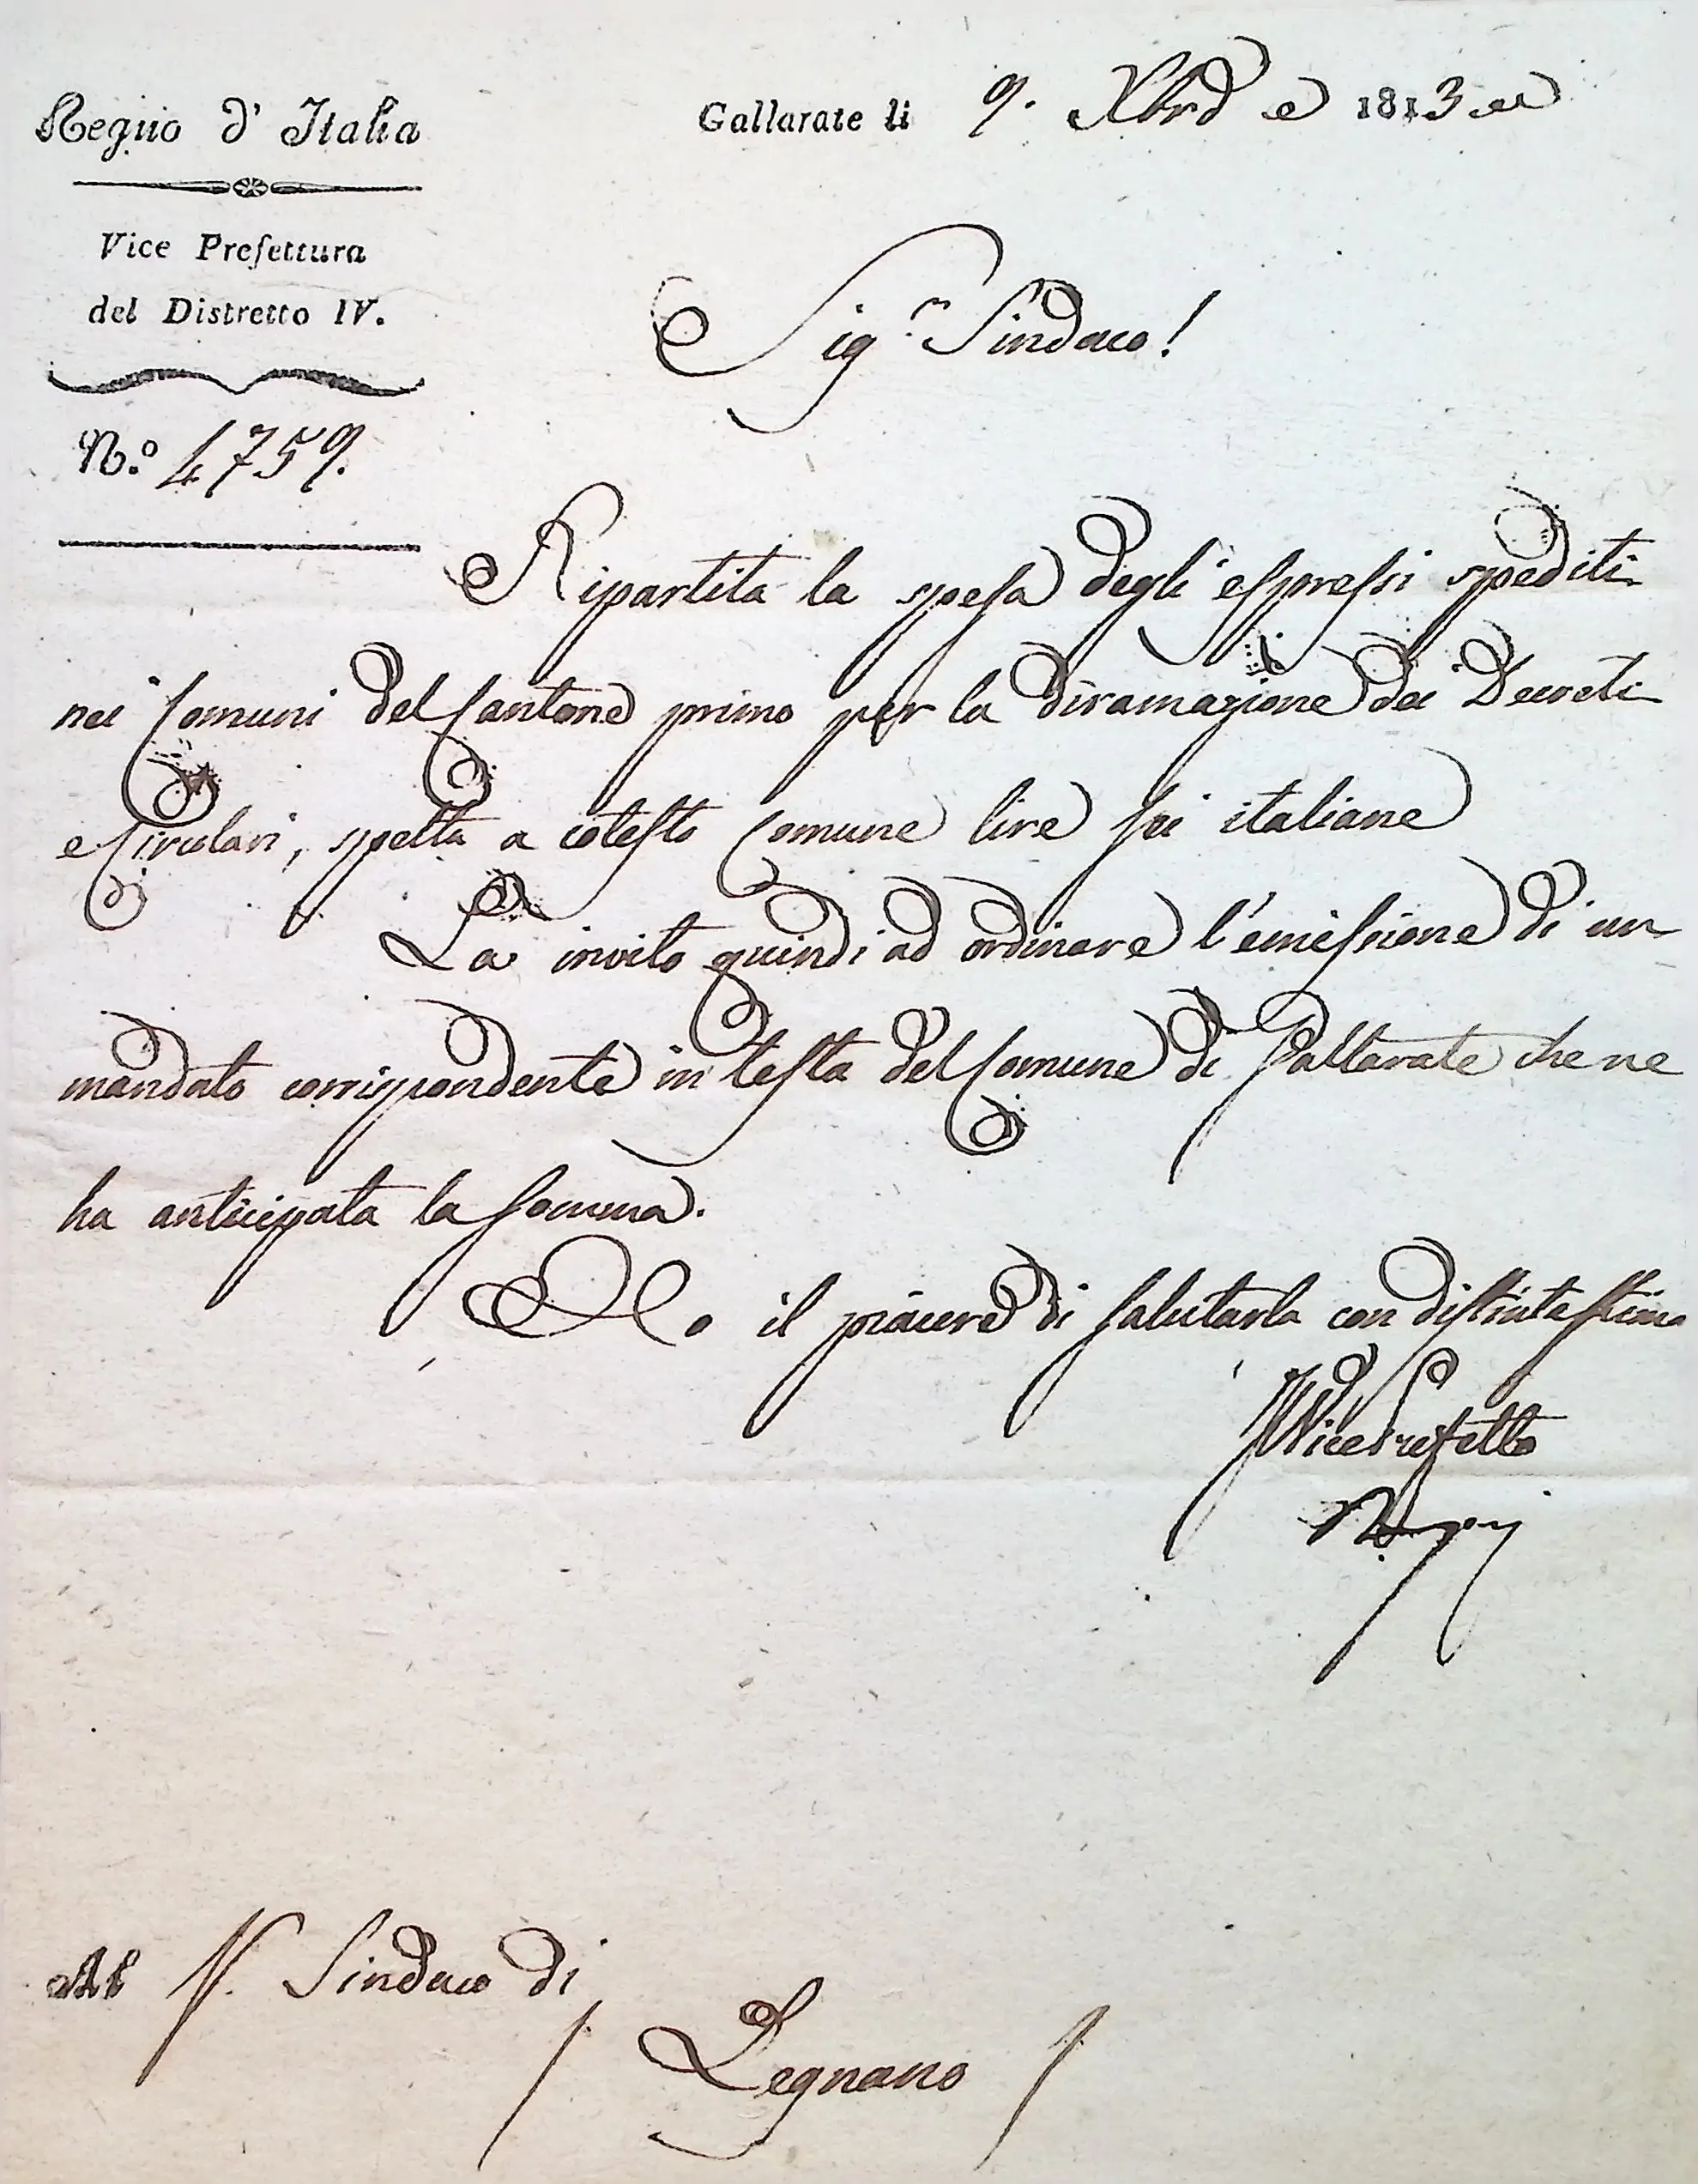 Regno d' Italia
Gallarate li 9. Xbre 1813
Vice Prefettura
del Distretto IV.
N.o 4759.
Sigr Sindaco!
Ripartita la spesa degli espressi spediti
nei Comuni del Cantone primo per la diramazione dei Decreti
e Circolari, spetta a cotesto Comune lire sei italiane
La invito quindi ad ordinare l'emissione di un
mandato corrispondente in testa del Comune di Gallarate che ne
ha anticipata la somma.
Ho il piacere di salutarla con distinta stima
Il Vice Prefetto
Al S. Sindaco di
Legnano